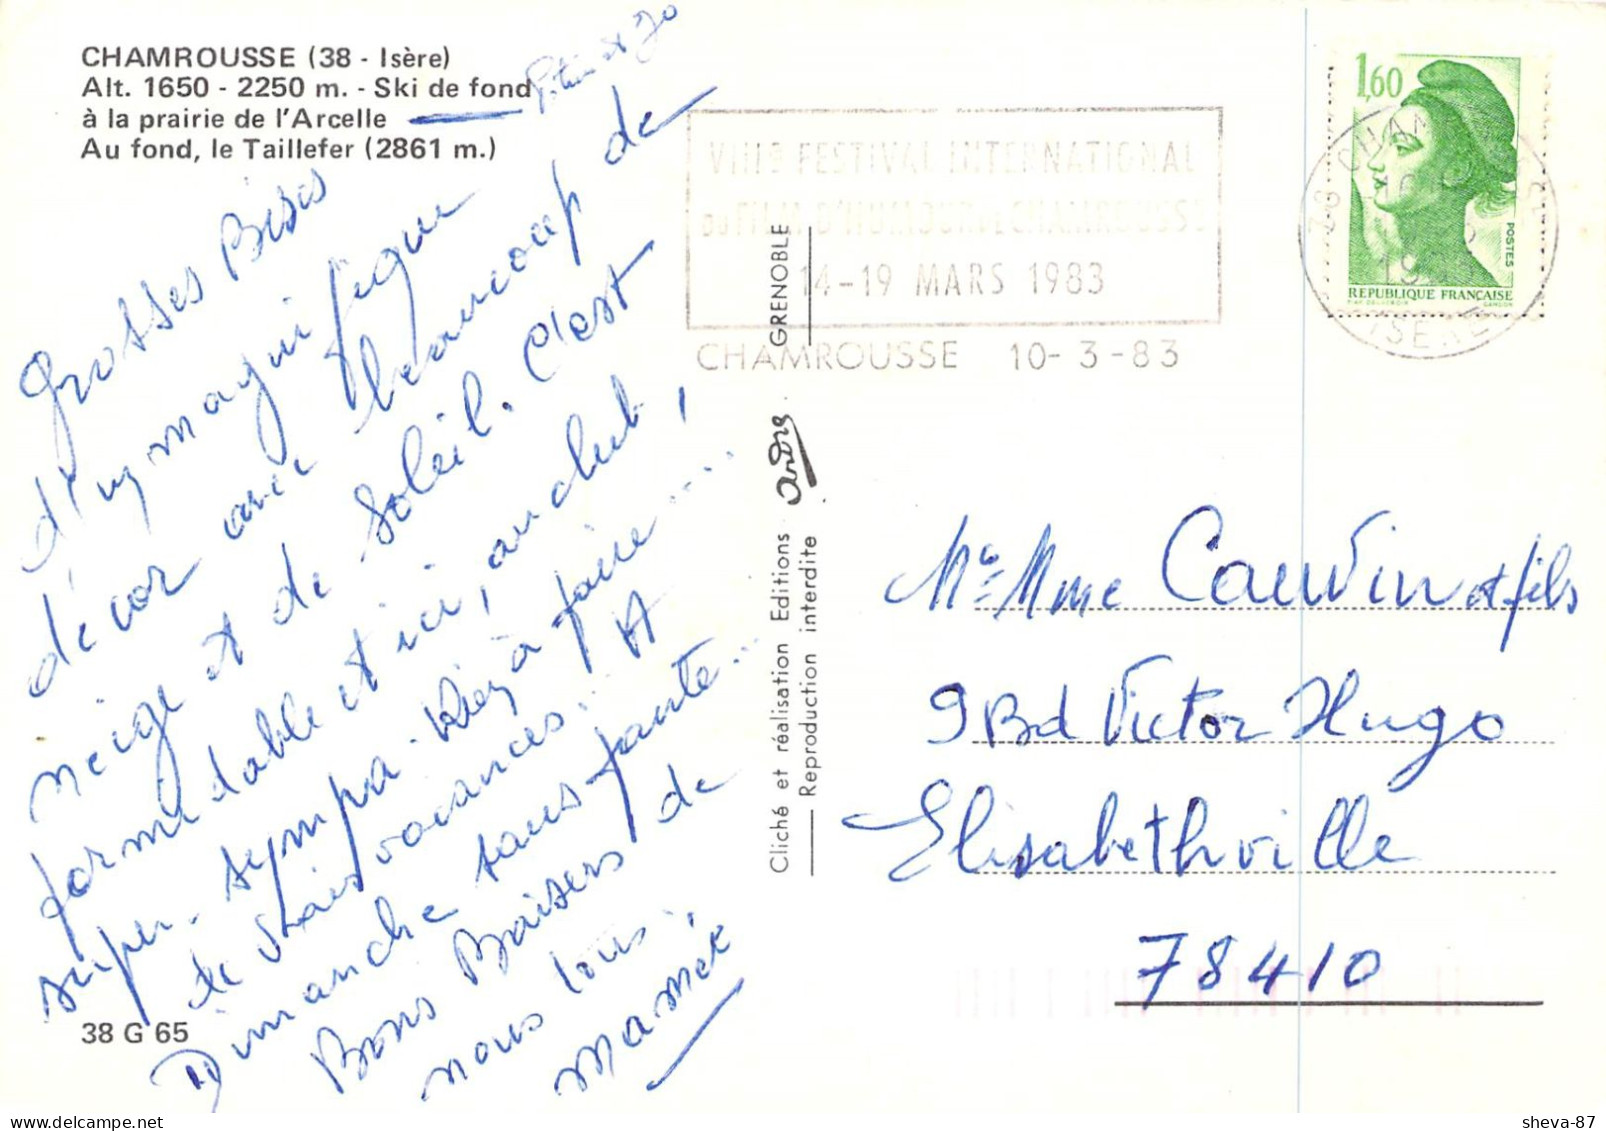 CHAMROUSSE (38 - Isère)
Alt. 1650 - 2250 m. - Ski de fond
à la prairie de l'Arcelle
Au fond, le Taillefer (2861 m.)
et Jo
Grosses Bises
d'un magnifique
décor avec beaucoup de
neige et de soleil. C'est
formidable et ici, au club,
super - sympa. Rien à faire .....
de vraies vacances... A
Dimanche sans faute...
Bons Baisers de
nous tous.
Mamée
38 G 65
VIIIe FESTIVAL INTERNATIONAL
DU FILM D'HUMOUR DE CHAMROUSSE
14-19 MARS 1983
CHAMROUSSE 10-3-83
1,60
POSTES
REPUBLIQUE FRANÇAISE
38 CHAM
ISERE
GRENOBLE
André
Cliché et réalisation Editions
Reproduction interdite
Mr Mme Cauvin et fils
9 Bd Victor Hugo
Elisabethville
78410
sheva-87